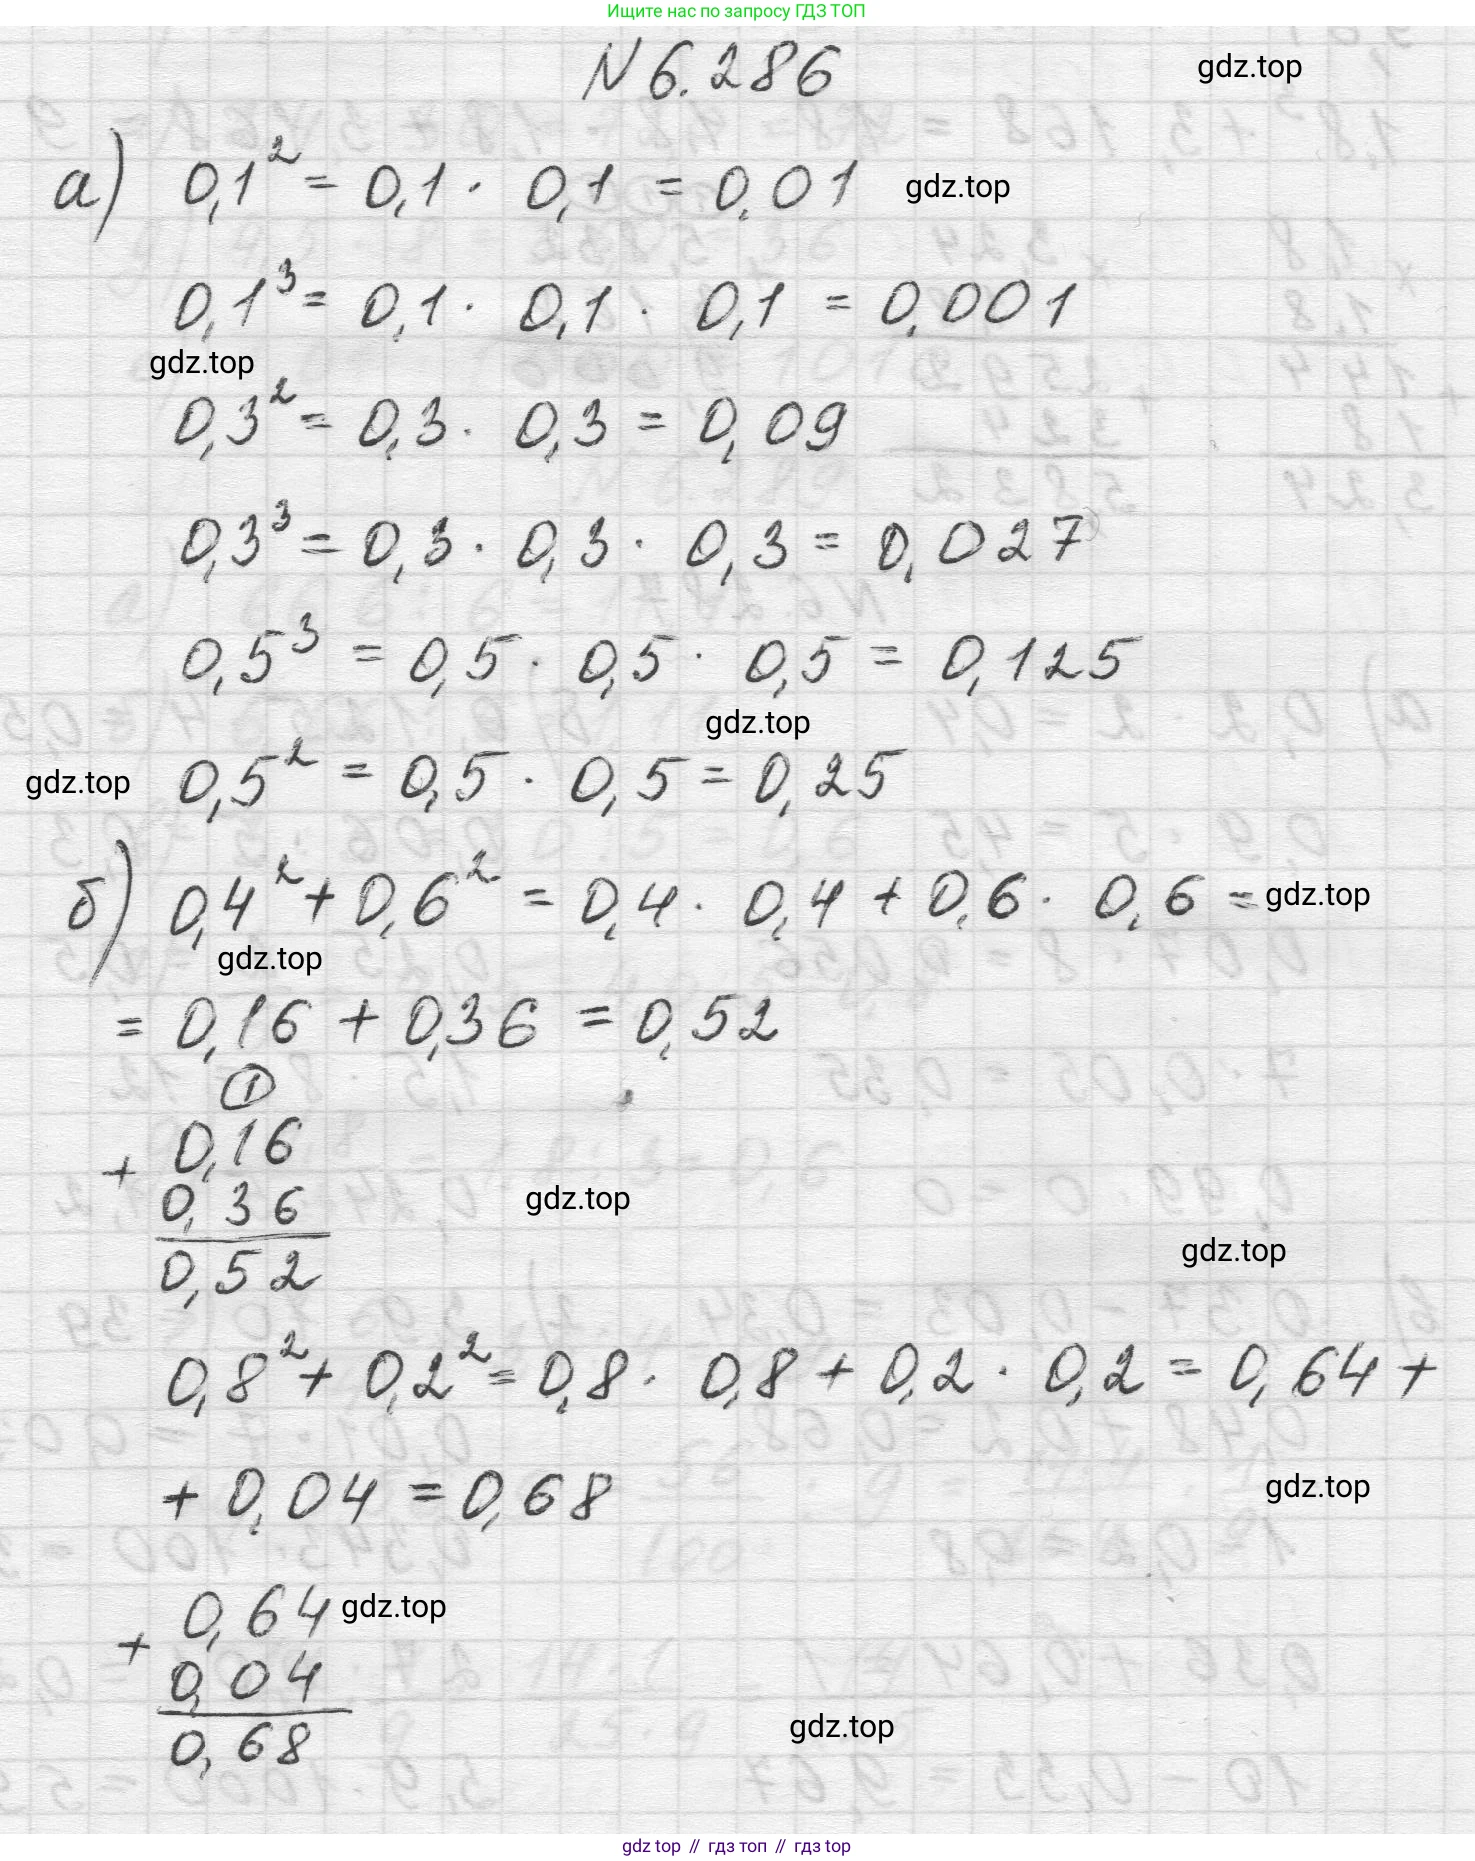 Ищите нас по запросу ГДЗ ТОП
N 6.286
gdz.top
а) 0,1² = 0,1 · 0,1 = 0,01
gdz.top
0,1³ = 0,1 · 0,1 · 0,1 = 0,001
gdz.top
0,3² = 0,3 · 0,3 = 0,09
0,3³ = 0,3 · 0,3 · 0,3 = 0,027
0,5³ = 0,5 · 0,5 · 0,5 = 0,125
gdz.top
gdz.top
0,5² = 0,5 · 0,5 = 0,25
б) 0,4² + 0,6² = 0,4 · 0,4 + 0,6 · 0,6 =
gdz.top
gdz.top
= 0,16 + 0,36 = 0,52
1
+ 0,16
0,36
0,52
gdz.top
gdz.top
0,8² + 0,2² = 0,8 · 0,8 + 0,2 · 0,2 = 0,64 +
+ 0,04 = 0,68
gdz.top
+ 0,64
0,04
0,68
gdz.top
gdz.top
gdz top // гдз топ // гдз top